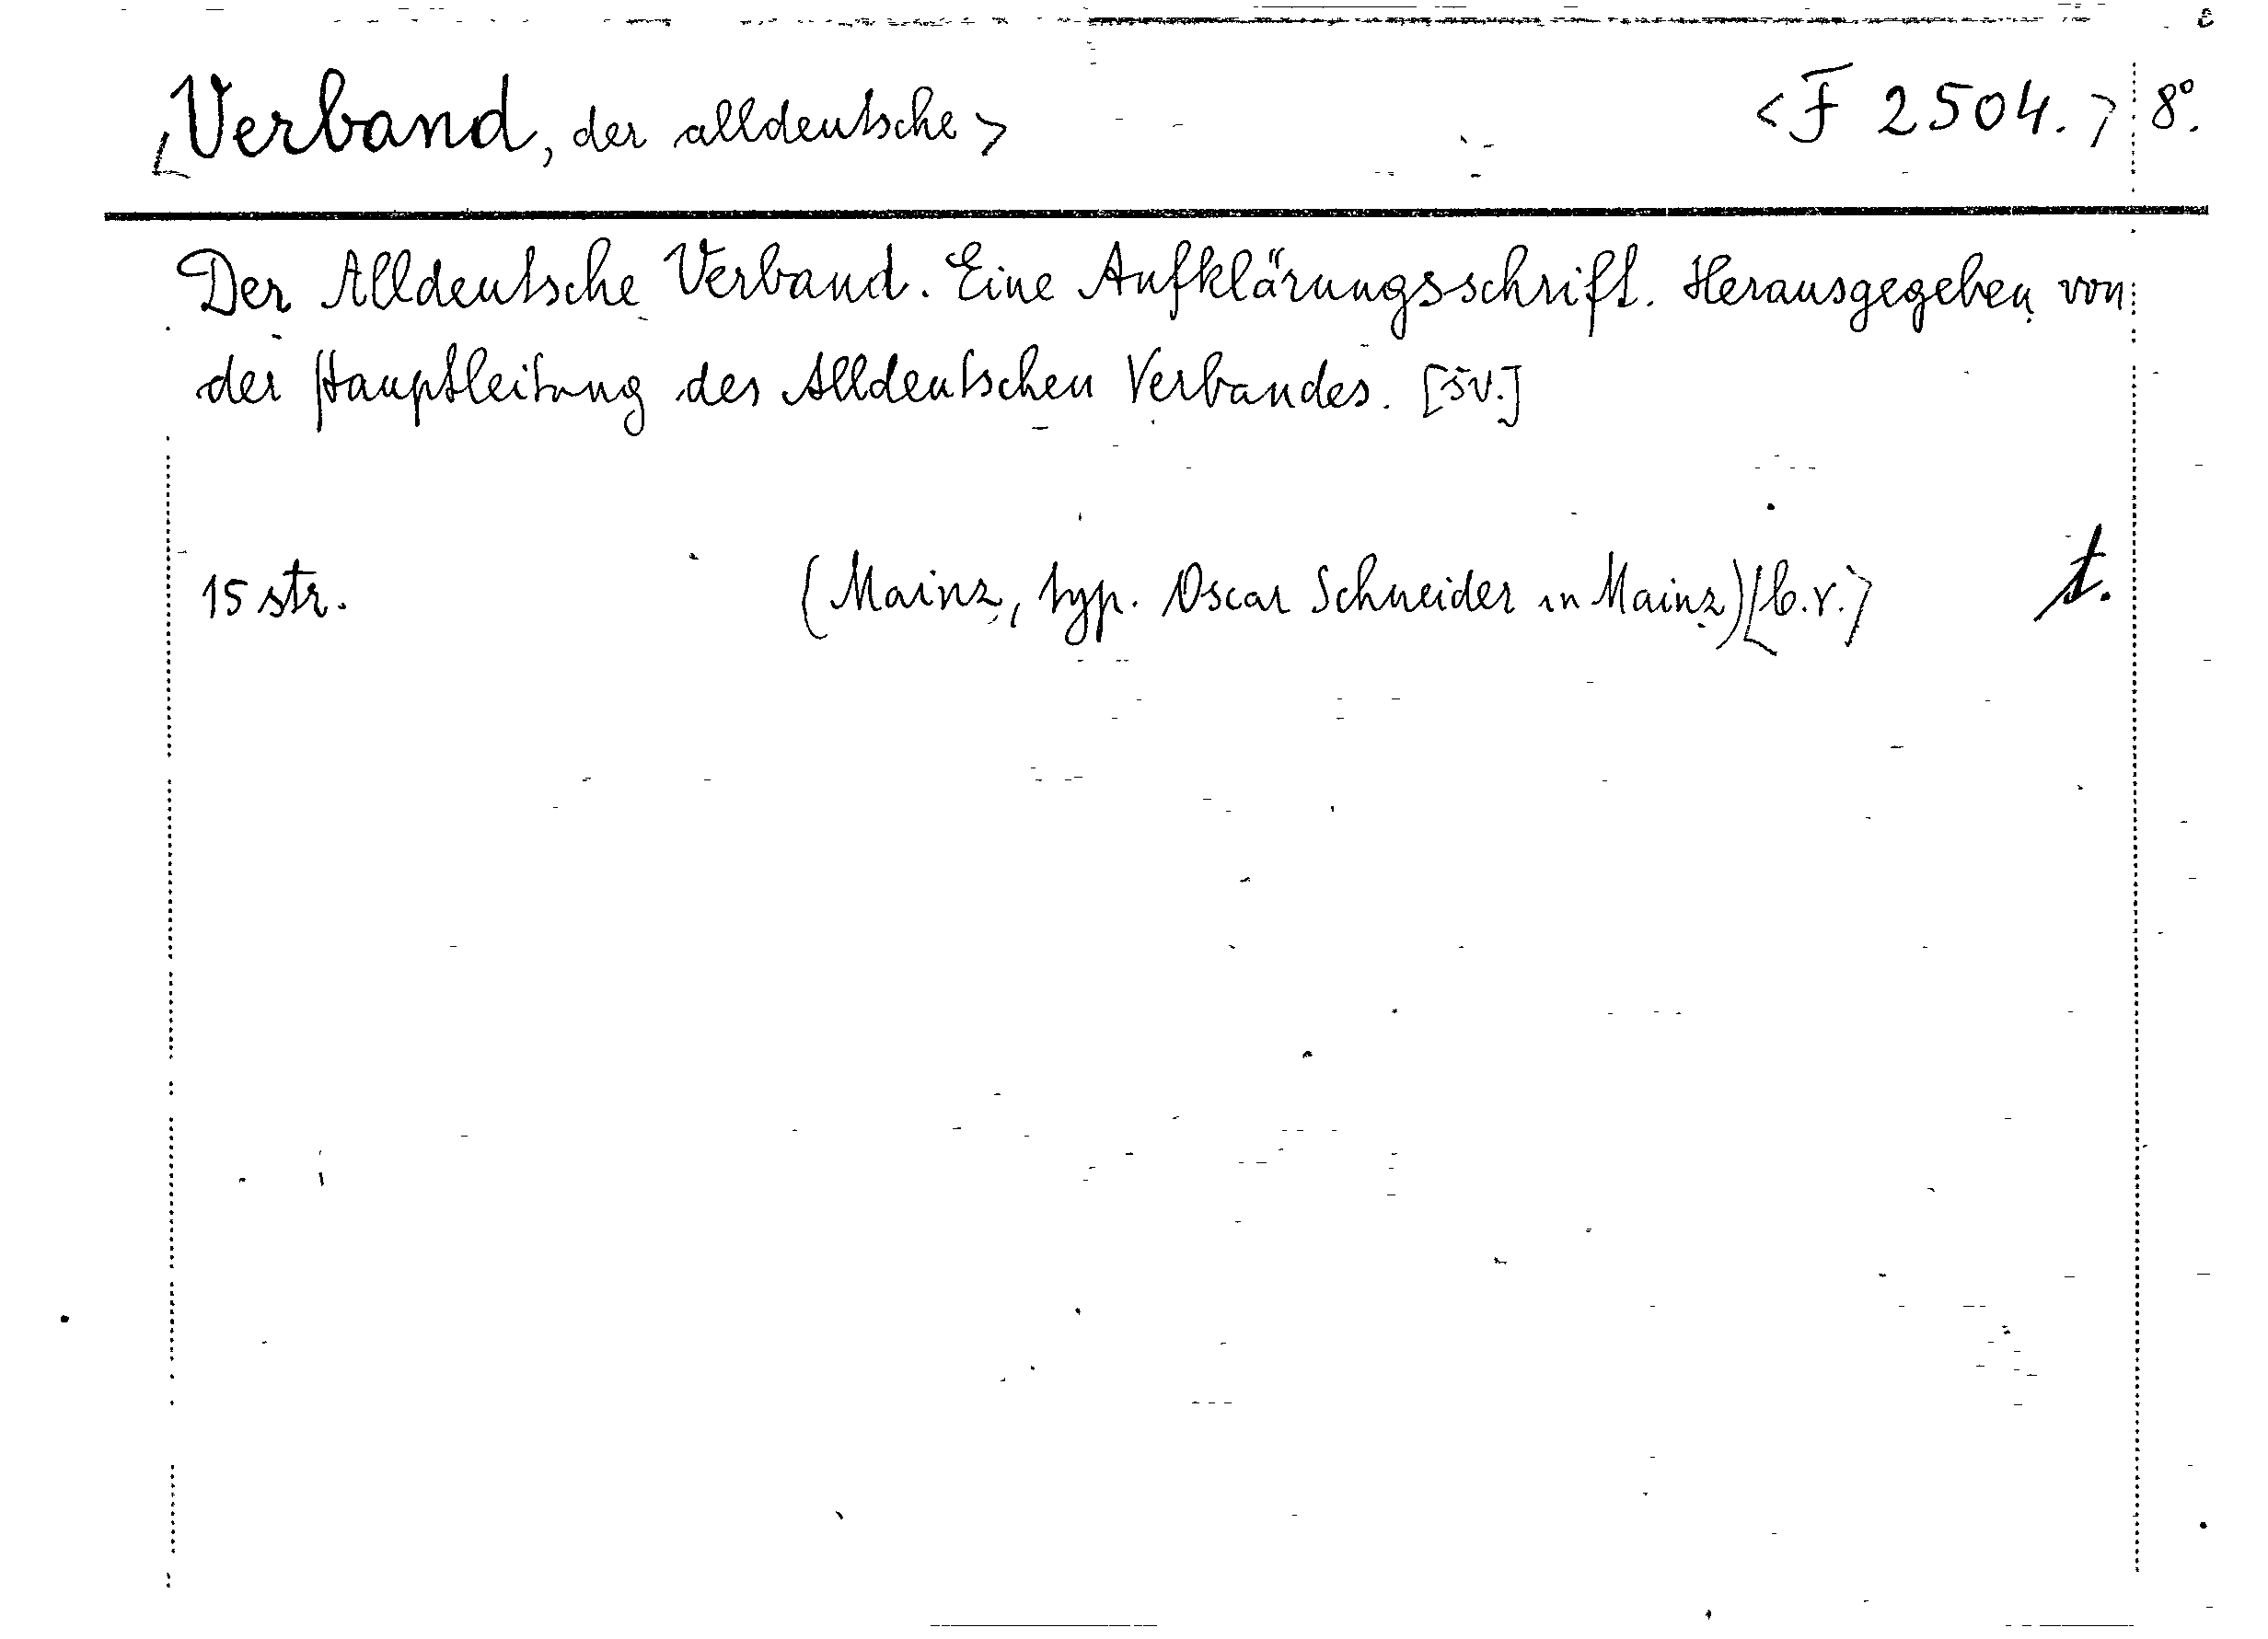 <Verband, der alldeutsche> <F 2504.> 8°.
Der Alldeutsche Verband. Eine Aufklärungsschrift. Herausgegeben von
der Hauptleitung des Alldeutschen Verbandes. [šv.]
15 str. (Mainz, typ. Oscar Schneider in Mainz) [b.r.> t.